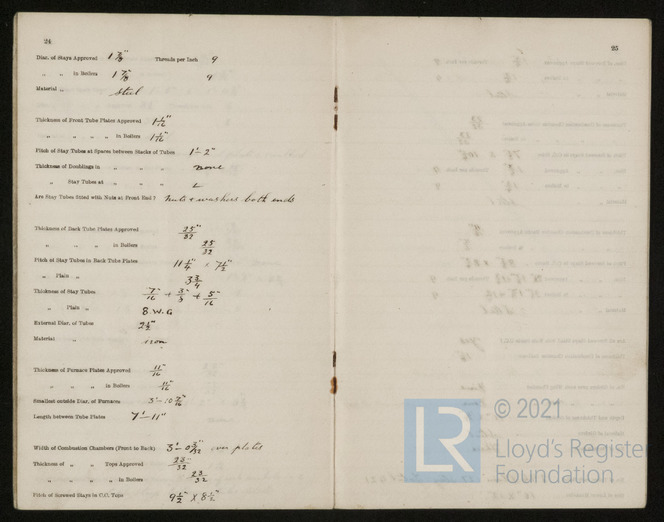 24
Diar. of Stays Approved 1 7/8" Threads per Inch 9
„ „ in Boilers 1 7/8" 9
Material „ Steel
Thickness of Front Tube Plates Approved 1 1/16"
„ „ „ „ in Boilers 1 1/16"
Pitch of Stay Tubes at Spaces between Stacks of Tubes 1'-2"
Thickness of Doublings in „ „ „ none
„ Stay Tubes at „ „ „
Are Stay Tubes fitted with Nuts at Front End? Nuts & washers both ends
Thickness of Back Tube Plates Approved 25/32"
„ „ „ in Boilers 25/32
Pitch of Stay Tubes in Back Tube Plates 11 1/4" × 7 1/2"
„ Plain „ 3 3/4
Thickness of Stay Tubes 7/16" + 3/8" + 5/16"
„ Plain „ 8.W.G
External Diar. of Tubes 2 1/2"
Material „ iron
Thickness of Furnace Plates Approved 11/16"
„ „ „ in Boilers 11/16"
Smallest outside Diar. of Furnaces 3'-10 7/16"
Length between Tube Plates 7'-11"
Width of Combustion Chambers (Front to Back) 3'-0 3/32" over plates
Thickness of „ „ Tops Approved 23/32"
„ „ „ „ in Boilers 23/32"
Pitch of Screwed Stays in C.C. Tops 9 1/2" × 8 1/2"
25
LR
© 2021
Lloyd's Register
Foundation